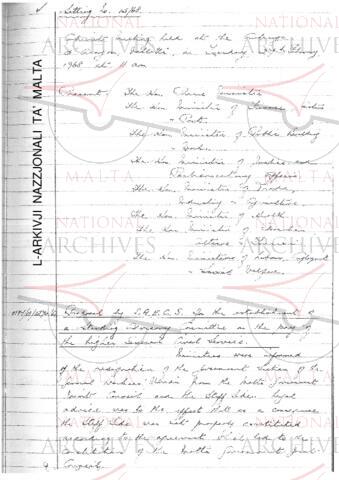 Sitting No. 
Cabinet meeting held at the Auberge
d'Aragon Valletta, on Tuesday
1968 at 11 am
Present: The Hon. Prime Minister
The Hon Minister of Finance
Ports
The Hon. Minister of Public Building
Works
The Hon. Minister of Justice and
Parliamentary Affairs
The Hon. Minister of Trade,
Industry & Agriculture
The Hon. Minister of Health
The Hon. Minister of Education
Culture & Tourism
The Hon. Minister of Labour, Employment
Social Welfare
Proposal by for the establishment of
a standing advisory Committee on the pay of
the higher General Civil Service.
Ministers were informed
of the resignation of the Government Section of the
General Workers' Union from the Malta Government
Joint Council and the Staff Side. Legal
advice was to the effect that as a consequence
the Staff Side was not properly constituted
according to the agreement which led to the
constitution of the Malta Government Joint
Council.
L-ARKIVJI NAZZJONALI TA' MALTA
NATIONAL
ARCHIVES
MALTA